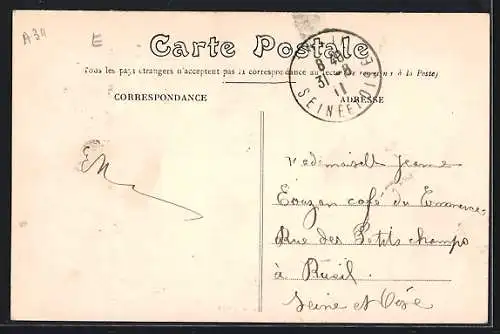 A34
E
Carte Postale
Tous les pays étrangers n'acceptent pas la correspondance au recto (Se renseigner à la Poste)
CORRESPONDANCE
ADRESSE
8 40
31 - 8
11
SEINE ET OISE
EM
Mademoiselle Jeanne
Eouzan café du Commerce
Rue des Petits champs
à Rueil.
Seine et Oise